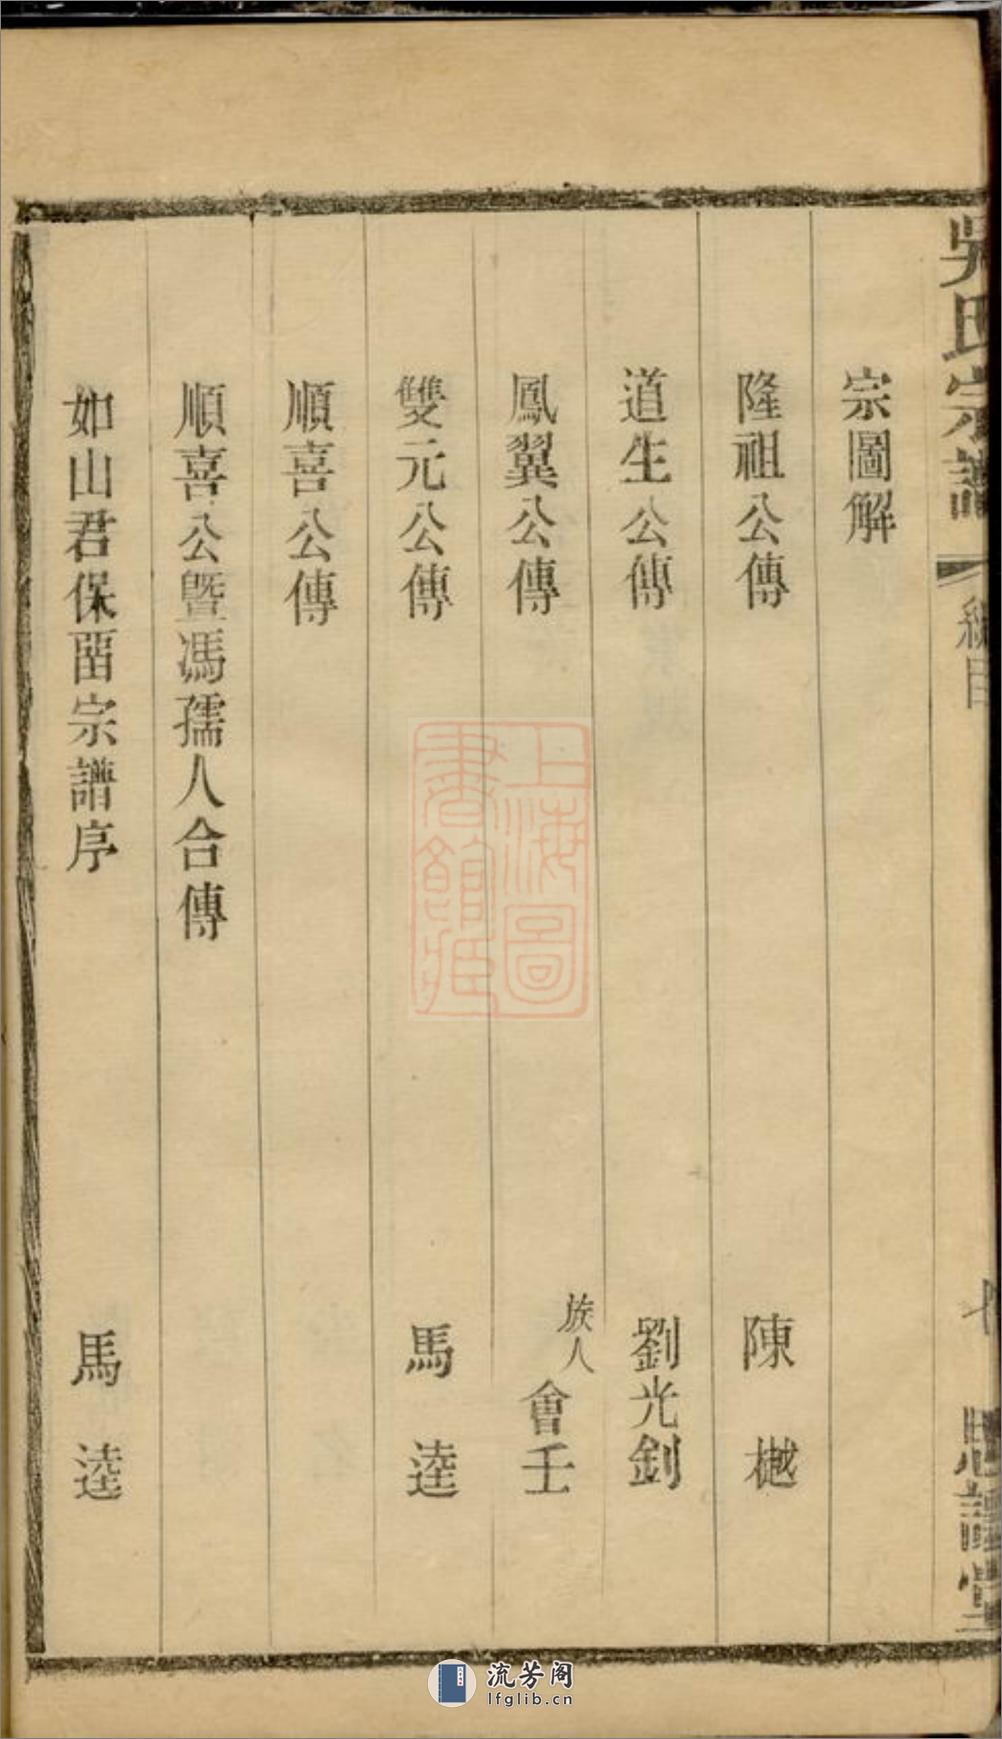 吳氏宗譜
總目
宗圖解
隆祖公傳 陳樾
道生公傳 劉光釗
鳳翼公傳 族人 會壬
雙元公傳 馬逵
順喜公傳
順喜公暨馮孺人合傳
如山君保畱宗譜序 馬逵
上海圖
書館藏
流芳阁
lfglib.cn